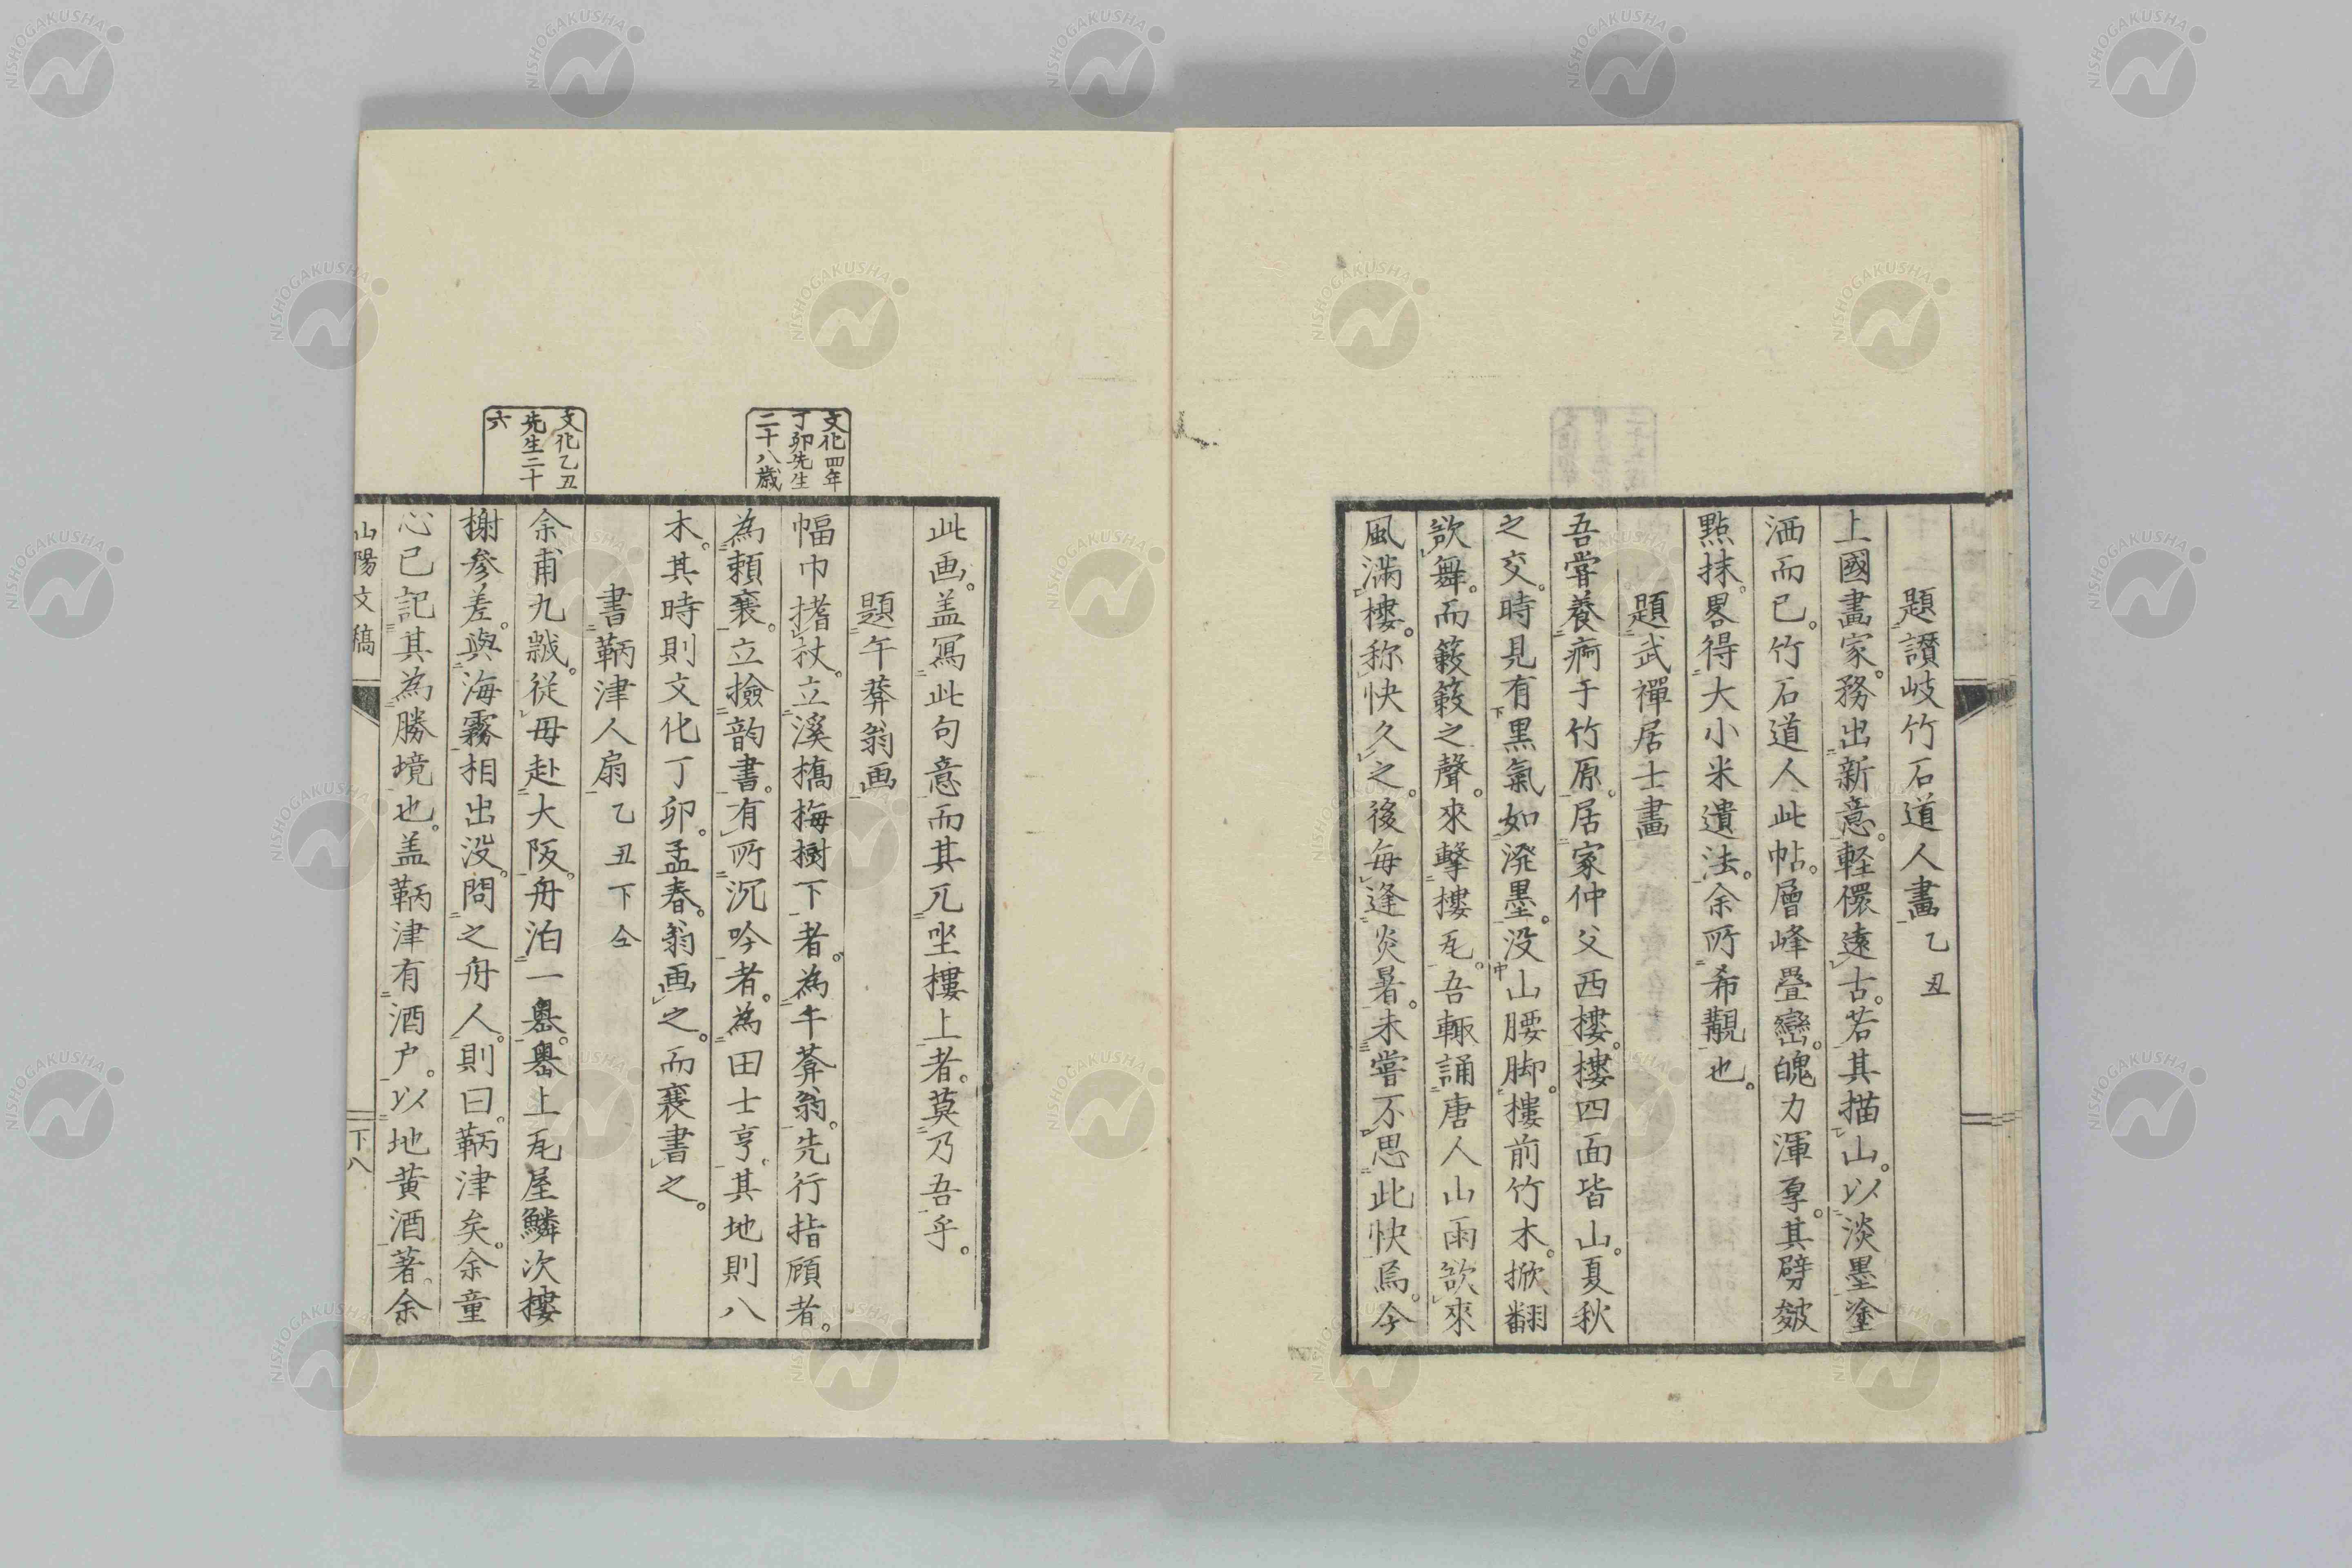 題讃岐竹石道人畫 乙丑
上國畫家。務出新意。軽儇遠古。若其描山。以淡墨塗
洒而已。竹石道人此帖。層峰疊巒。魄力渾厚。其劈皴
點抹。畧得大小米遺法。余所希覯也。
題武禪居士畫
吾嘗養痾于竹原。居家仲父西樓。樓四面皆山。夏秋
之交。時見有黒氣如潑墨。没山腰脚。樓前竹木。掀翻
欲舞。而簌簌之聲。來擊樓瓦。吾輒誦唐人山雨欲來
風滿樓。称快久之。後毎逢炎暑。未嘗不思此快焉。今
此画。盖冩此句意而其兀坐樓上者。莫乃吾乎。
題午莽翁画
文化四年
丁卯先生
二十八歳
幅巾揩杖。立溪橋梅樹下者。為午莽翁。先行指顧者。
為頼襄。立撿韵書。有所沉吟者。為田士亨。其地則八
木。其時則文化丁卯。孟春。翁画之。而襄書之。
書鞆津人扇 乙丑下仝
文化乙丑
先生二十
六
余甫九齔。從母赴大阪。舟泊一嶴。嶴上瓦屋鱗次樓
榭参差。與海霧相出没。問之舟人。則曰。鞆津矣。余童
心已記其為勝境也。盖鞆津有酒户。以地黄酒著。余
山陽文稿
下八
NISHOGAKUSHA